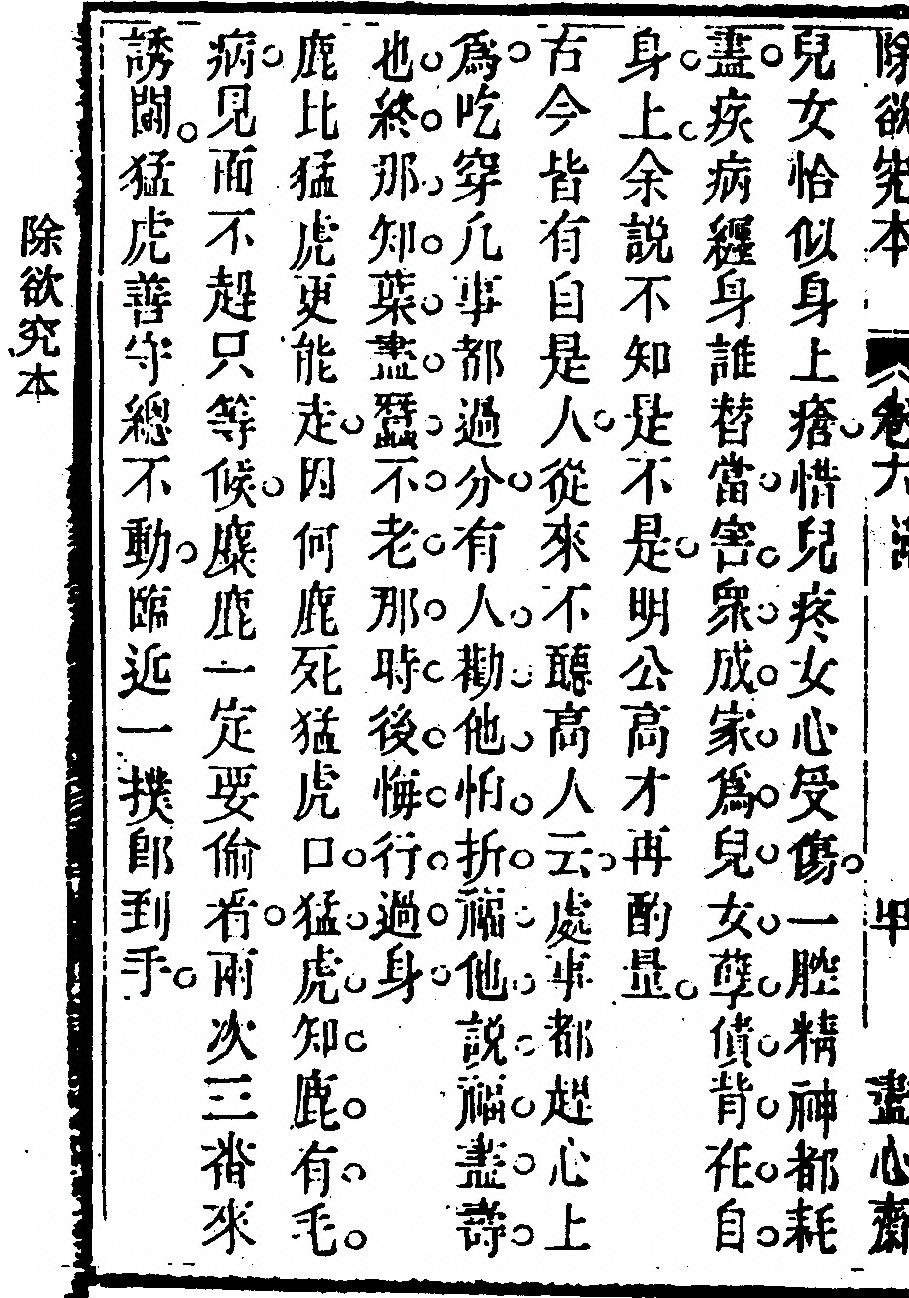 除欲究本 卷六 甲 盡心齋
兒女恰似身上瘡惜兒疼女心受傷一腔精神都耗
盡疾病纏身誰替當害衆成家爲兒女孽債背在自
身上余說不知是不是明公高才再酌量
古今皆有自是人從來不聽高人云處事都趕心上
爲吃穿凡事都過分有人勸他怕折福他說福盡壽
也終那知葉盡蠶不老那時後悔行過身
鹿比猛虎更能走因何鹿死猛虎口猛虎知鹿有毛
病見面不趕只等候麋鹿一定要偷看兩次三番來
誘閙猛虎善守總不動臨近一撲郎到手
除欲究本